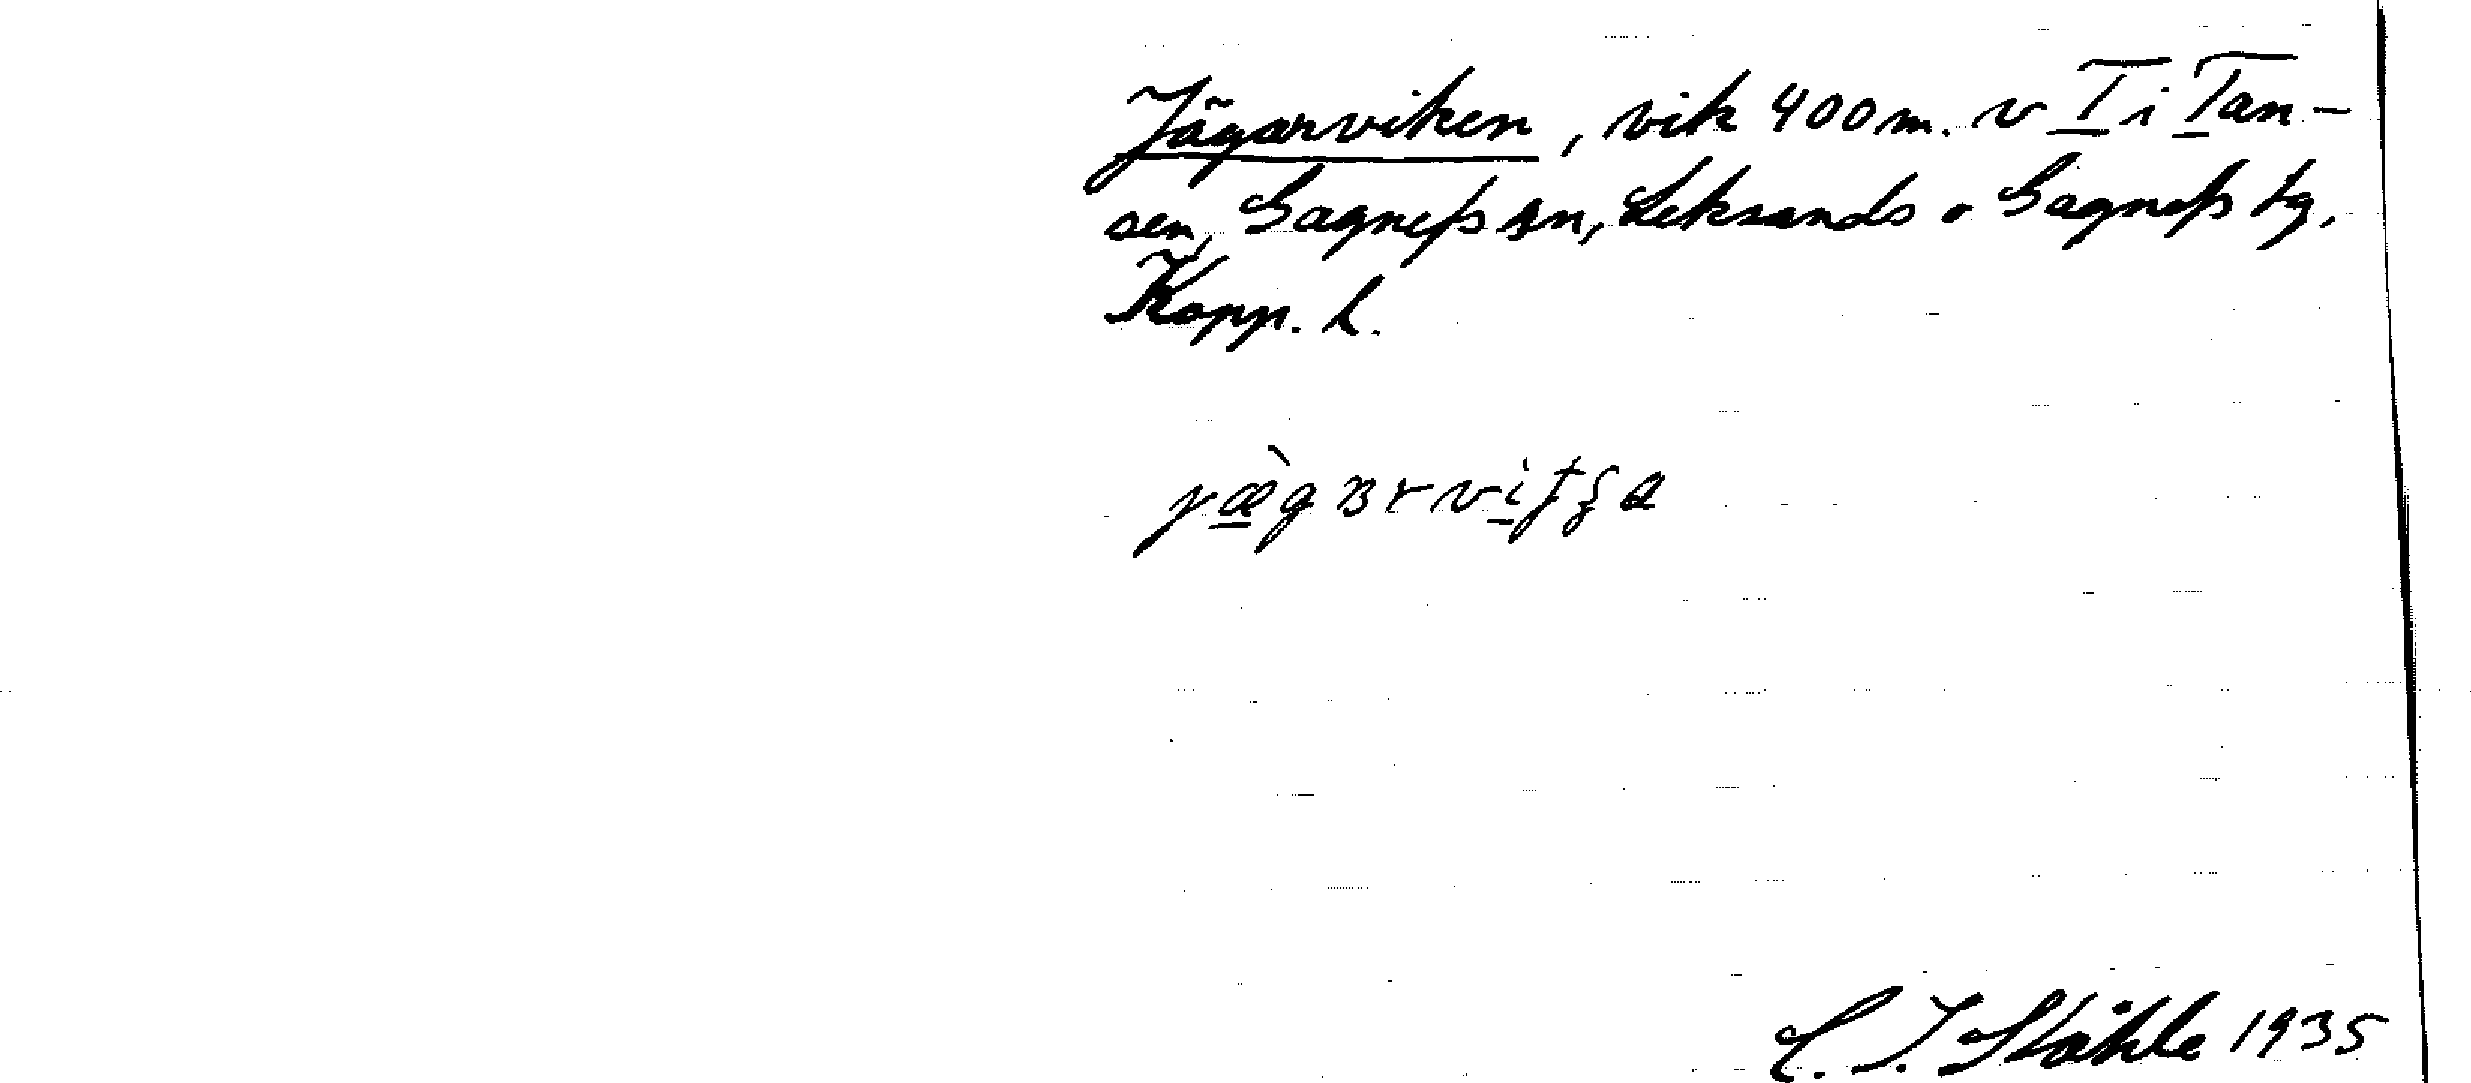 Jägarviken, vik 400 m. v T i Tan-
sen, Gagnefs sn, Leksands o Gagnefs tg,
Kopp. l.
C. I. Ståhle 1935